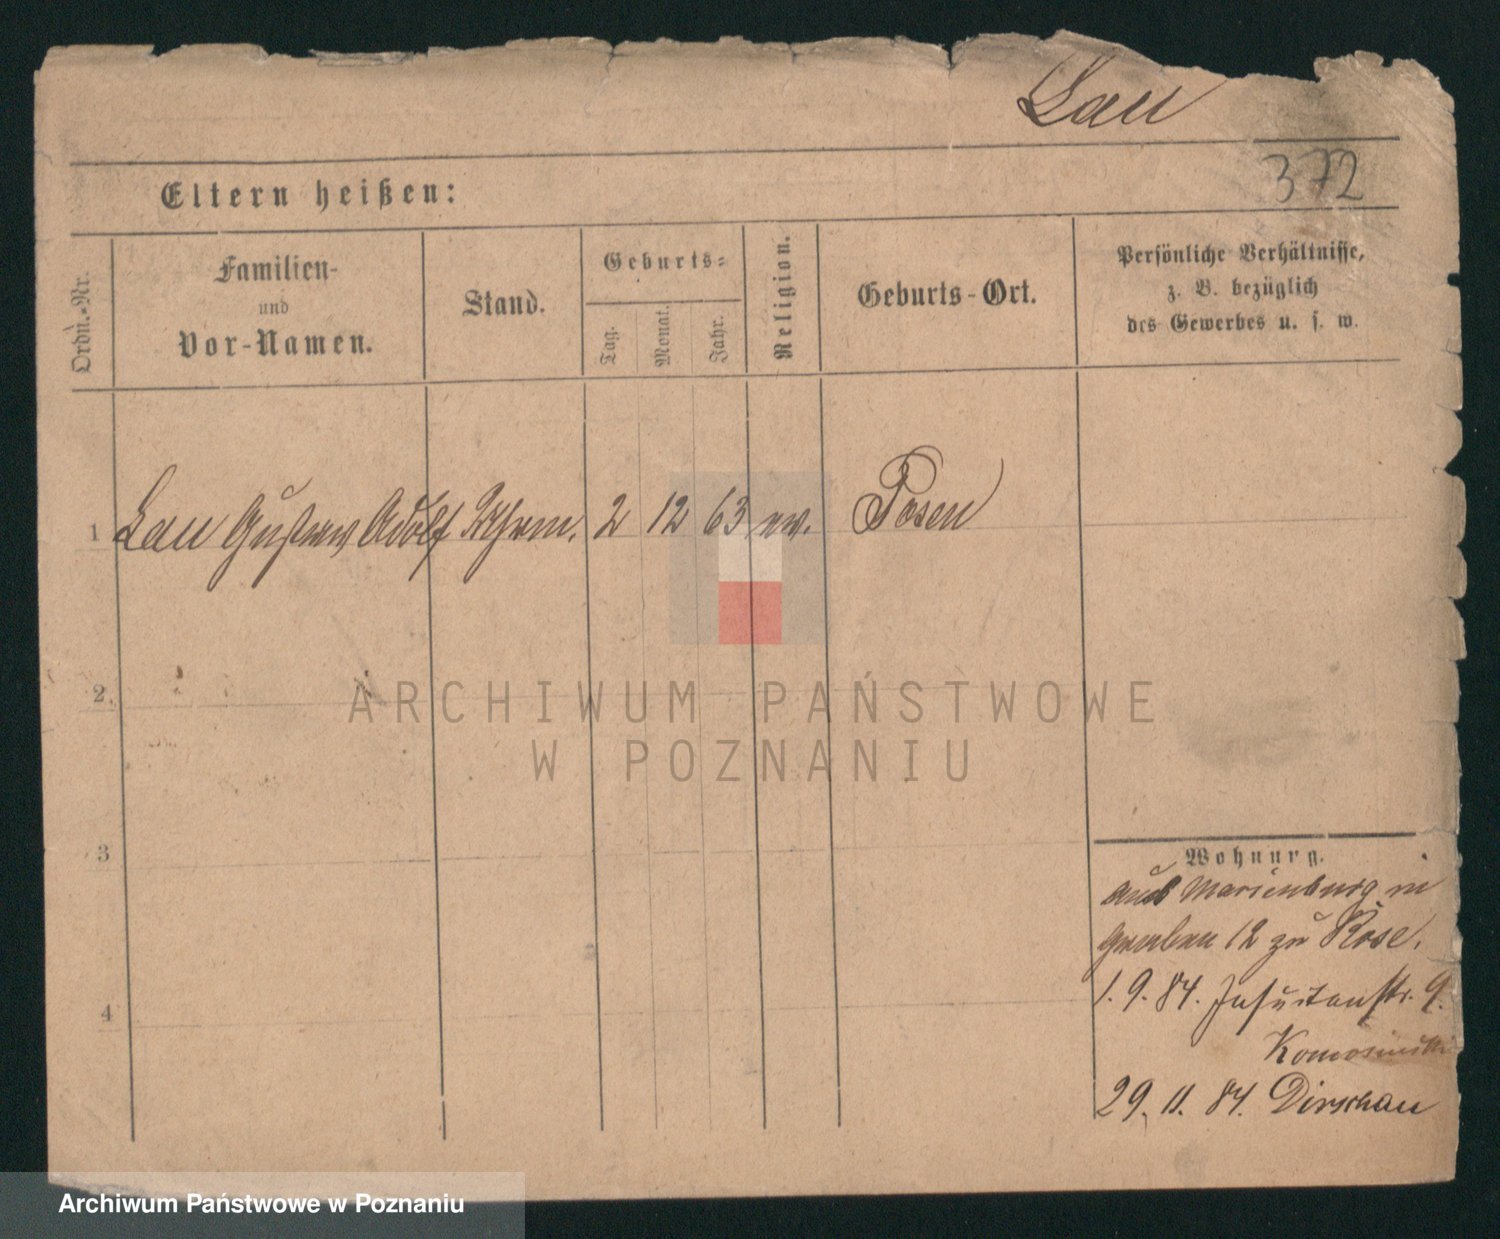 Lau
372
Eltern heißen:
Ordn.-Nr.
Familien-
und
Vor-Namen.
Stand.
Geburts-
Tag.
Monat.
Jahr.
Religion.
Geburts-Ort.
Persönliche Verhältnisse,
z. B. bezüglich
des Gewerbes u. s. w.
1 Lau Gustav Adolf 2 12 63 ev. Posen
2
3
4
Wohnung.
aus Marienburg in
Graben 12 zu Rose.
1. 9. 84. Jesuitenstr. 9.
29. 11. 84. Dirschau
ARCHIWUM PAŃSTWOWE
W POZNANIU
Archiwum Państwowe w Poznaniu